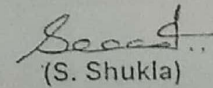 (S. Shukla)